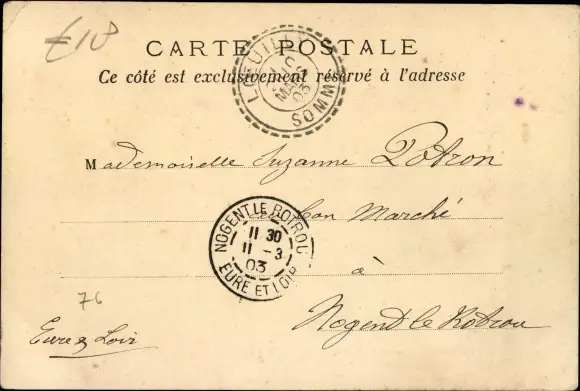 €18
CARTE POSTALE
Ce côté est exclusivement réservé à l'adresse
LŒUILLY
10
MARS
03
SOMME
Mademoiselle Suzanne Potron
Bon Marché
NOGENT LE ROTROU
11 30
11 - 3
03
EURE ET LOIR
à
Nogent le Rotrou
76
Eure & Loir